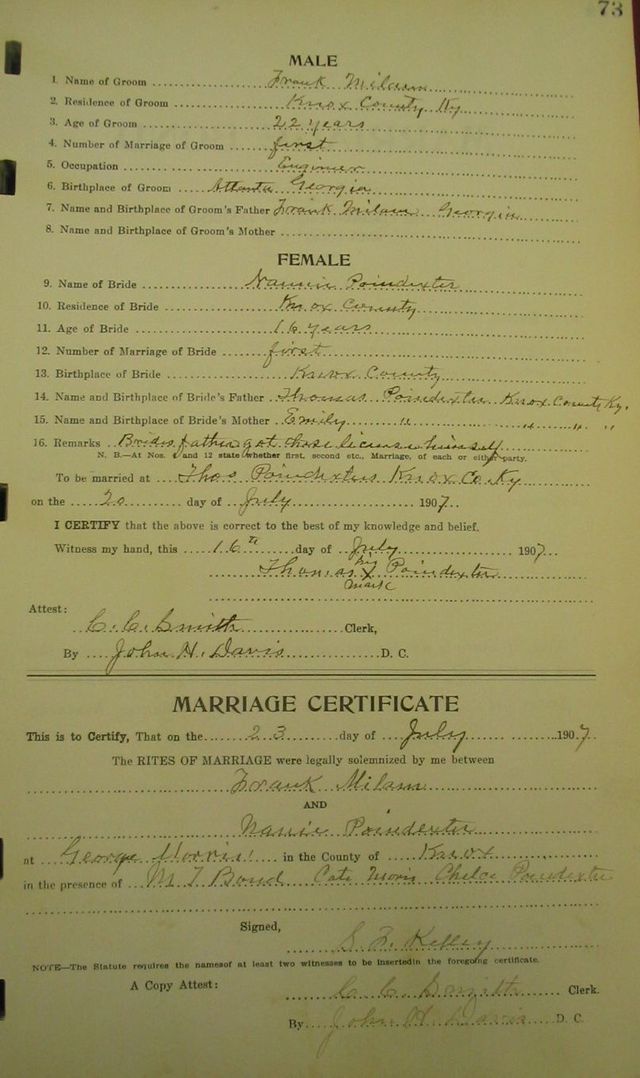 73
MALE
1. Name of Groom Frank Milam
2. Residence of Groom Knox County Ky
3. Age of Groom 22 years
4. Number of Marriage of Groom first
5. Occupation Enginer
6. Birthplace of Groom Atlanta Georgia
7. Name and Birthplace of Groom's Father Frank Milam Georgia
8. Name and Birthplace of Groom's Mother
FEMALE
9. Name of Bride Nannie Poindexter
10. Residence of Bride Knox County
11. Age of Bride 16 years
12. Number of Marriage of Bride first
13. Birthplace of Bride Knox County
14. Name and Birthplace of Bride's Father Thomas Poindexter Knox County Ky.
15. Name and Birthplace of Bride's Mother Emily " " " "
16. Remarks Brides father got these license himself
N. B.—At Nos. and 12 state whether first, second etc., Marriage, of each or either party.
To be married at Thos Poindexters Knox Co Ky
on the 20 day of July 1907
I CERTIFY that the above is correct to the best of my knowledge and belief.
Witness my hand, this 16th day of July 1907
Thomas his X mark Poindexter
Attest:
C. C. Smith Clerk,
By John H. Davis D. C.
MARRIAGE CERTIFICATE
This is to Certify, That on the 23 day of July 1907
The RITES OF MARRIAGE were legally solemnized by me between
Frank Milam
AND
Nannie Poindexter
at George Morris' in the County of Knox
in the presence of M T Bond Cate Morris Poindexter
Signed,
S. F. Kelley
NOTE—The Statute requires the namesof at least two witnesses to be insertedin the foregoing certificate.
A Copy Attest: C. C. Smith Clerk.
By John H. Davis D. C.